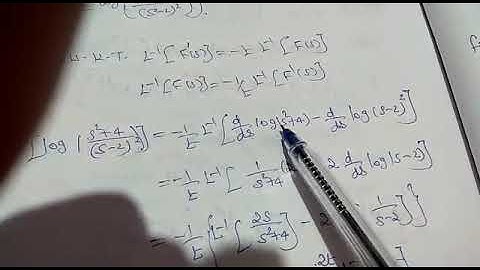 log ((s-2)²).
W.K.T. L⁻¹[F(s)] = -1/t L⁻¹[F'(s)]
L⁻¹[F(s)] = -1/t L⁻¹[F'(s)]
[log (s²+4/(s-2)²)] = -1/t L⁻¹[d/ds log(s²+4) - d/ds log(s-2)²]
= -1/t L⁻¹[1/s²+4 2 d/ds log(s-2)
= -1/t {L⁻¹[2s/s²+4] - 2 1/s-2]}
2t